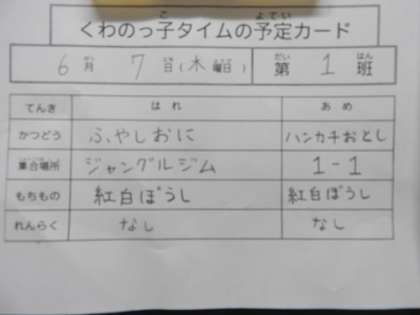 くわのっ子タイムの予定カード
6月 7日(木曜日) 第 1 班
てんき はれ あめ
かつどう ふやしおに ハンカチおとし
集合場所 ジャングルジム 1-1
もちもの 紅白ぼうし 紅白ぼうし
れんらく なし なし